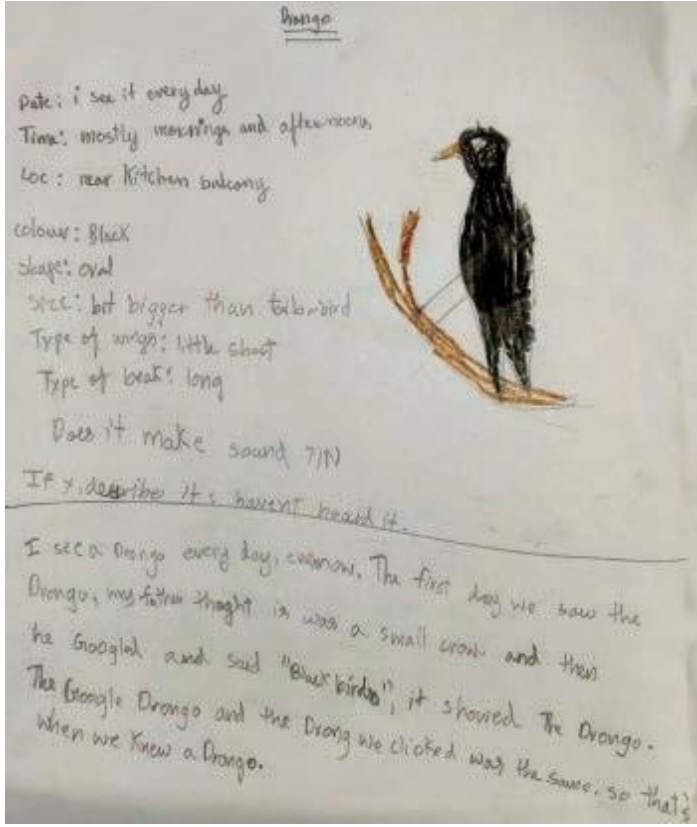 Drongo
Date: i see it everyday
Time: mostly mornings and afternoons
Loc: near Kitchen balcony
colour: Black
shape: oval
size: bit bigger than tailorbird
Type of wings: little short
Type of beak: long
Does it make sound Y/N
If y, describe it: havent heard it.
I see a Drongo every day, The first day we saw the
Drongo, my father thoght is was a small crow and then
he Googled and said "Black birds", it showed The Drongo.
The Google Drongo and the Drong we clicked was the same, so that's
when we knew a Drongo.